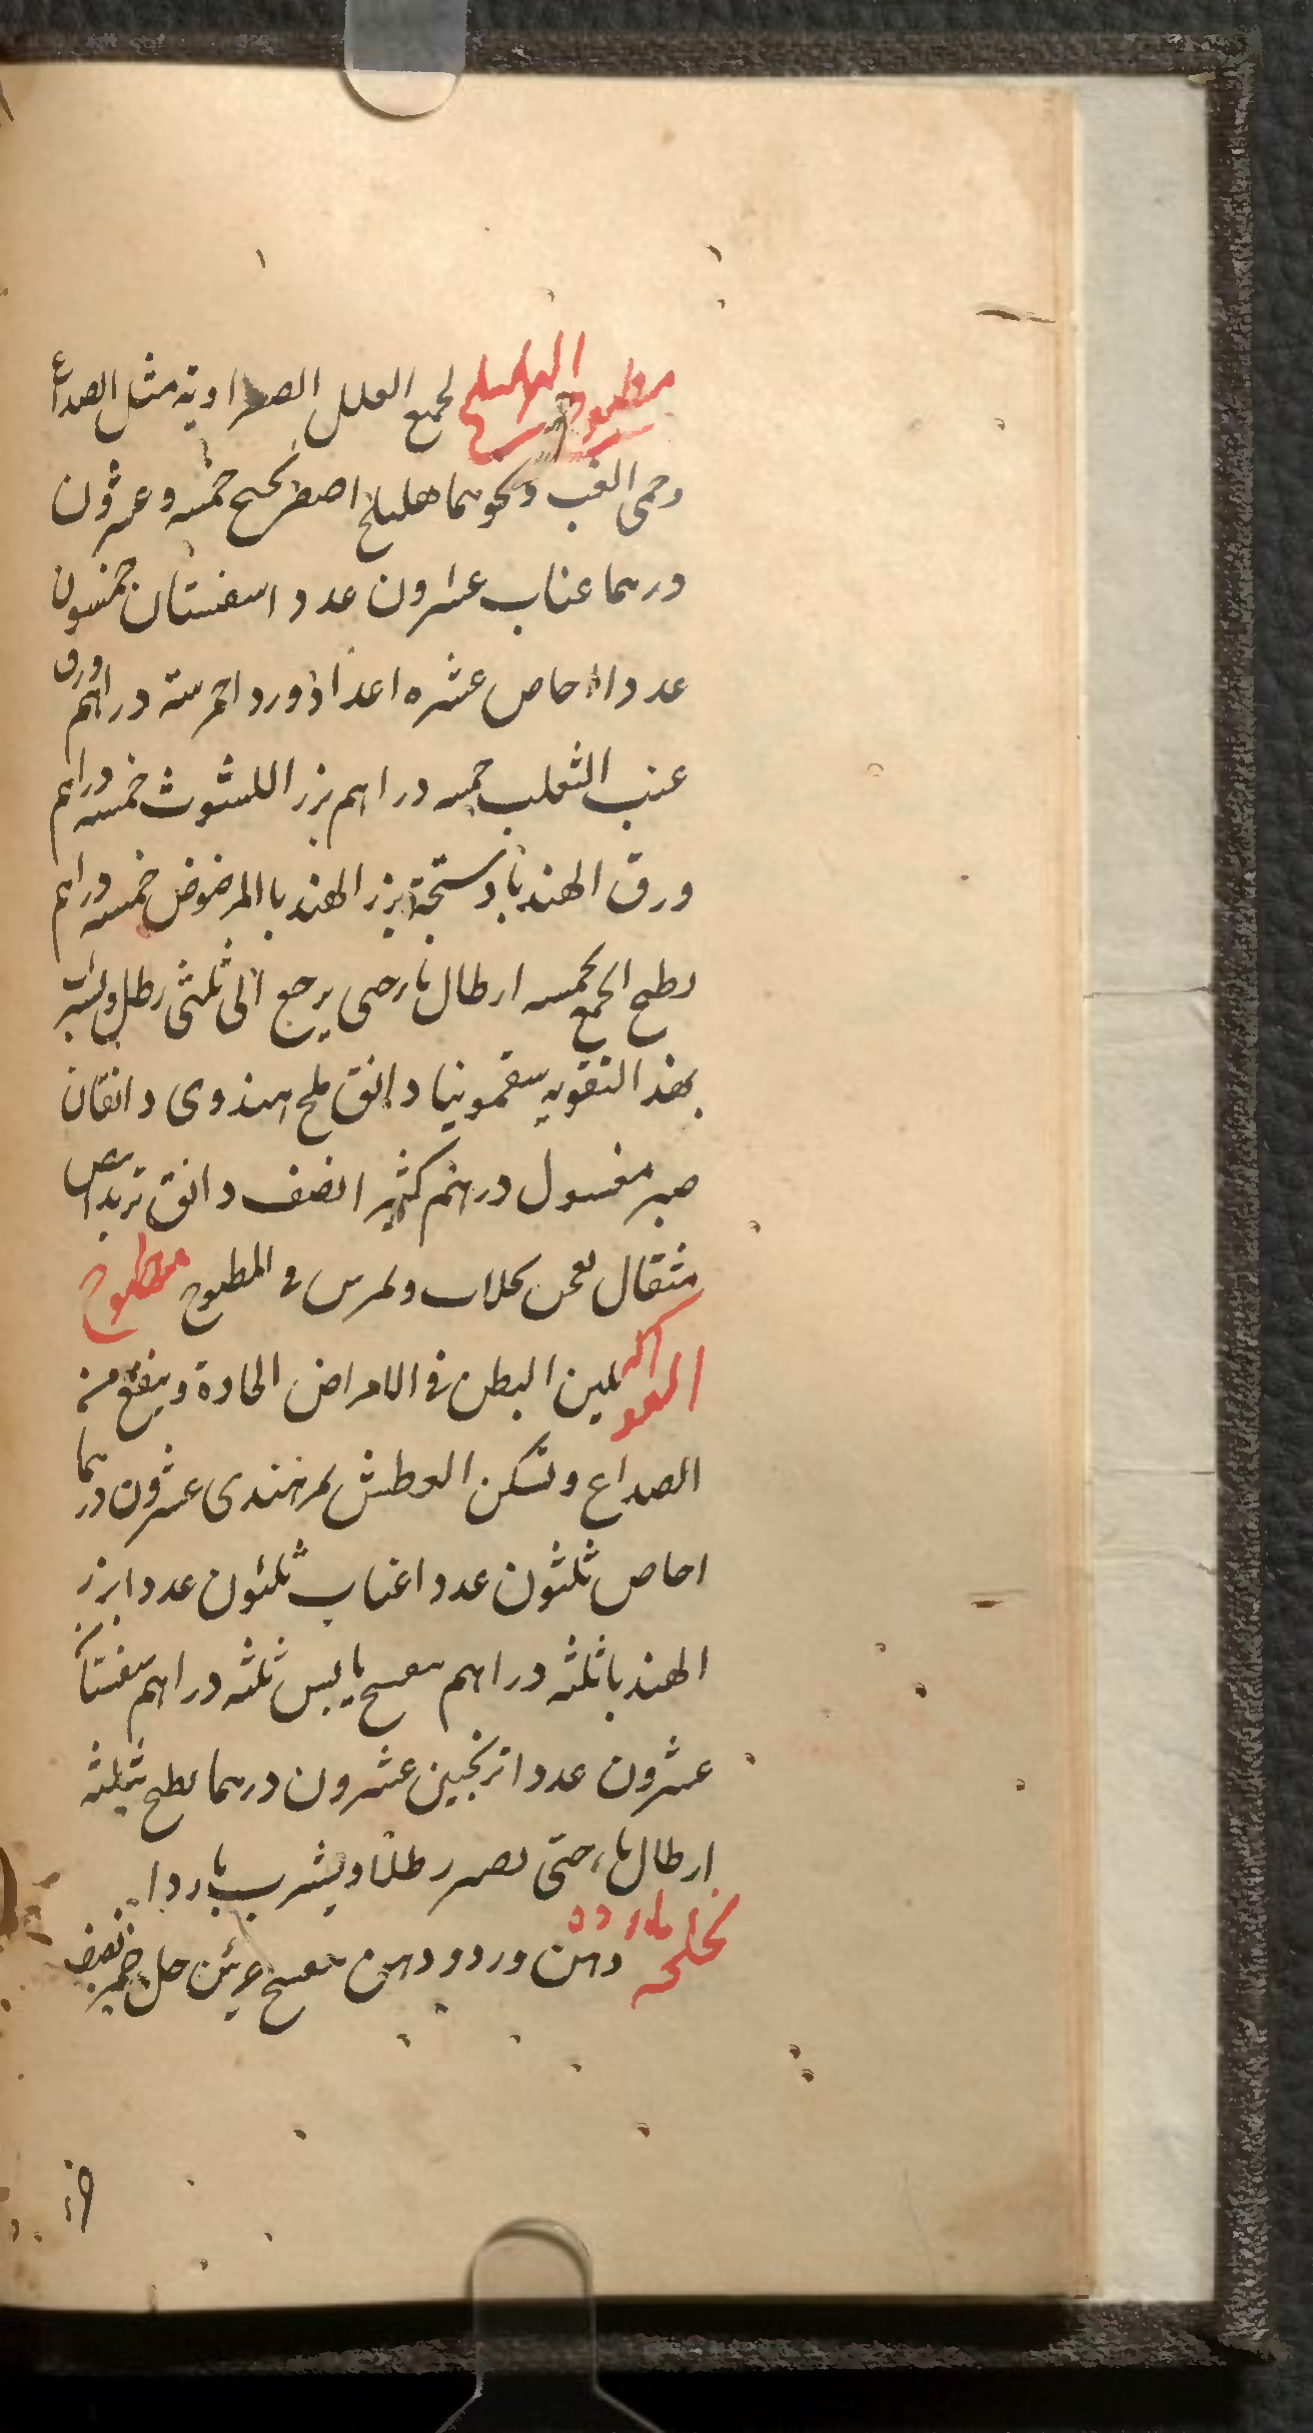 مطبوخ الهليلج لجميع العلل الصفراوية مثل الصداع
وحمى الغب ونحوهما هليلج اصفر خمسه وعشرون
درهما عناب عشرون عدد اسفستان خمسون
عددا اجاص عشره اعداد ورد احمر ستة دراهم ورق
عنب الثعلب خمسه دراهم بزر الكشوث خمسه دراهم
ورق الهندبا دستجة بزر الهندبا المرضوض خمسه دراهم
يطبخ الجميع بخمسه ارطال ماء حتى يرجع الى ثلثى رطل ويشرب
بهذا التقويه سقمونيا دانق ملح هندوى دانقان
صبر مغسول درهم كثيرا نصف دانق تربد ابيض
مثقال يعجن بجلاب ويمرس فى المطبوخ مطبوخ
الفواكه يلين البطن فى الامراض الحادة وينفع من
الصداع وتسكن العطش تمر هندى عشرون درهما
اجاص ثلثون عددا عناب ثلثون عددا بزر
الهندبا ثلثه دراهم بنفسج يابس ثلثه دراهم سفستان
عشرون عددا ترنجبين عشرون درهما يطبخ بثلثه
ارطال ماء حتى يصير رطلا ويشرب باردا
لخلخه بارده دهن ورد ودهن بنفسج خل خمر نصف